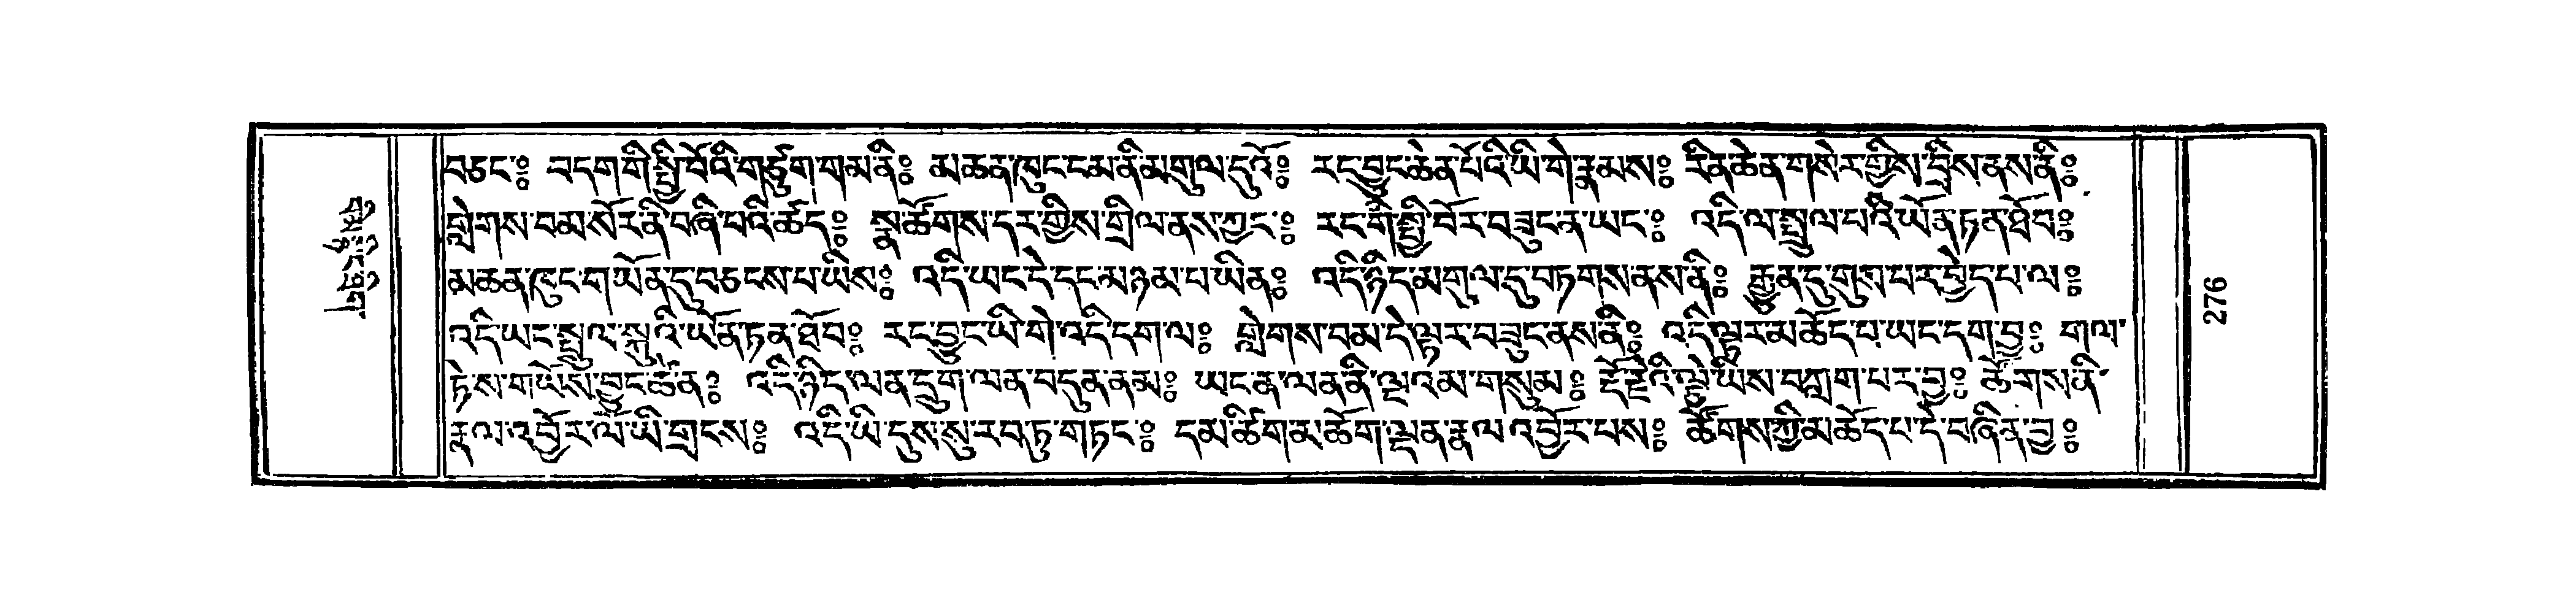 བཅང་༔ བདག་གི་སྤྱི་བོའི་གཙུག་གམ་ནི༔ མཆན་ཁུང་ངམ་ནི་མགུལ་དུའོ༔ རང་བྱུང་ཆེན་པོའི་ཡི་གེ་རྣམས༔ རིན་ཆེན་གསེར་གྱིས་བྲིས་ནས་ནི༔
གླེགས་བམ་སོར་ནི་བཞི་པའི་ཚད༔ སྣ་ཚོགས་དར་གྱིས་གྲིལ་ནས་ཀྱང་༔ རང་གི་སྤྱི་བོར་བཟུང་ན་ཡང་༔ འདི་ལ་སྤྲུལ་པའི་ཡོན་ཏན་ཐོབ༔
མཆན་ཁུང་གཡོན་དུ་བཅངས་པ་ཡིས༔ འདི་ཡང་དེ་དང་མཉམ་པ་ཡིན༔ འདི་ཉིད་མགུལ་དུ་བཏགས་ནས་ནི༔ རྒྱུན་དུ་གུས་པར་བྱེད་པ་ལ༔
འདི་ཡང་སྤྲུལ་སྐུའི་ཡོན་ཏན་ཐོབ༔ རང་བྱུང་ཡི་གེ་འདི་དག་ལ༔ གླེགས་བམ་དེ་ལྟར་བཟུང་ནས་ནི༔ འདི་ལྟར་མཆོད་པ་ཡང་དག་བྱ༔ གལ་
ཏེ་ས་གཡོས་བྱུང་ཚོ་ན༔ འདི་ཉིད་ལན་དྲུག་ལན་བདུན་ནམ༔ ཡང་ན་ལན་ནི་ལྔ་འམ་གསུམ༔ རྡོ་རྗེའི་ལྕེ་ཡིས་བཀླག་པར་བྱ༔ ཚོགས་ནི་
རྣལ་འབྱོར་ལོ་ཡི་གྲངས༔ འདི་ཡི་དུས་སུ་རབ་ཏུ་གཏང་༔ དམ་ཚིག་མཆོག་ལྡན་རྣལ་འབྱོར་པས༔ ཚོགས་ཀྱི་མཆོད་པ་དེ་བཞིན་བྱ༔
276